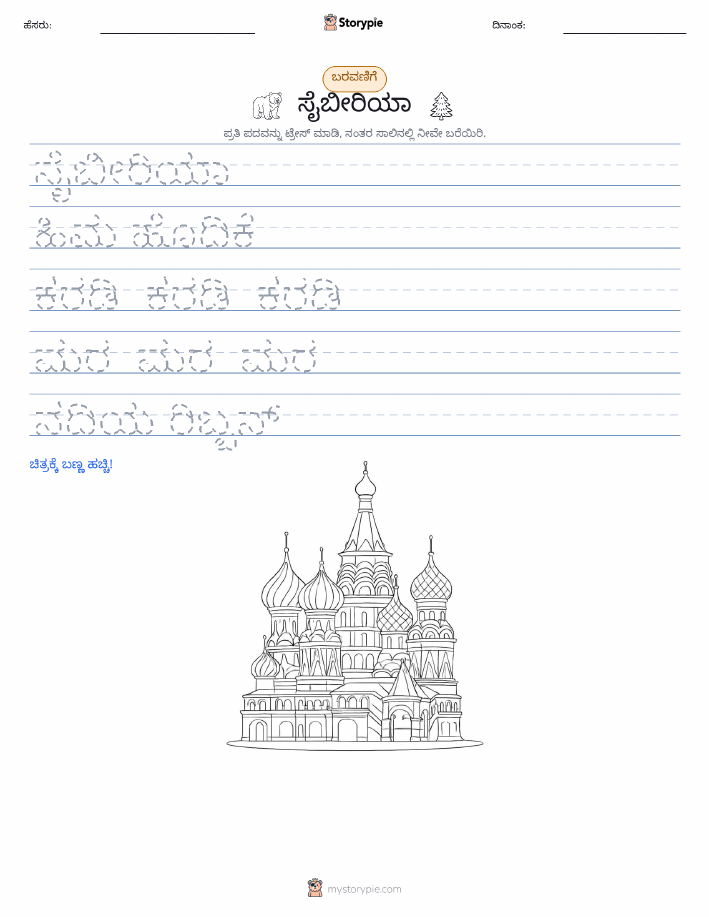 ಹೆಸರು:
Storypie
ದಿನಾಂಕ:
ಬರವಣಿಗೆ
ಸೈಬೀರಿಯಾ
ಪ್ರತಿ ಪದವನ್ನು ಟ್ರೇಸ್ ಮಾಡಿ, ನಂತರ ಸಾಲಿನಲ್ಲಿ ನೀವೇ ಬರೆಯಿರಿ.
ಸೈಬೀರಿಯಾ
ಹಿಮ ಹೊದಿಕೆ
ಕರಡಿ ಕರಡಿ ಕರಡಿ
ಮರ ಮರ ಮರ
ನದಿಯ ರಿಬ್ಬನ್
ಚಿತ್ರಕ್ಕೆ ಬಣ್ಣ ಹಚ್ಚಿ!
mystorypie.com